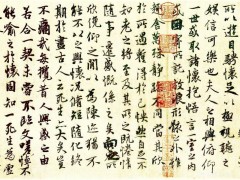 所以遊目騁懷足以極視聽之
娛信可樂也夫人之相與俯仰
一世或取諸懷抱悟言一室之內
或因寄所託放浪形骸之外雖
趣舍萬殊靜躁不同當其欣
於所遇暫得於己怏然自足不
知老之將至及其所之既惓情
隨事遷感慨係之矣向之所
欣俛仰之間以為陳迹猶不
能不以之興懷況脩短隨化終
期於盡古人云死生亦大矣豈
不痛哉每攬昔人興感之由
若合一契未嘗不臨文嗟悼不
能喻之於懷固知一死生為虛